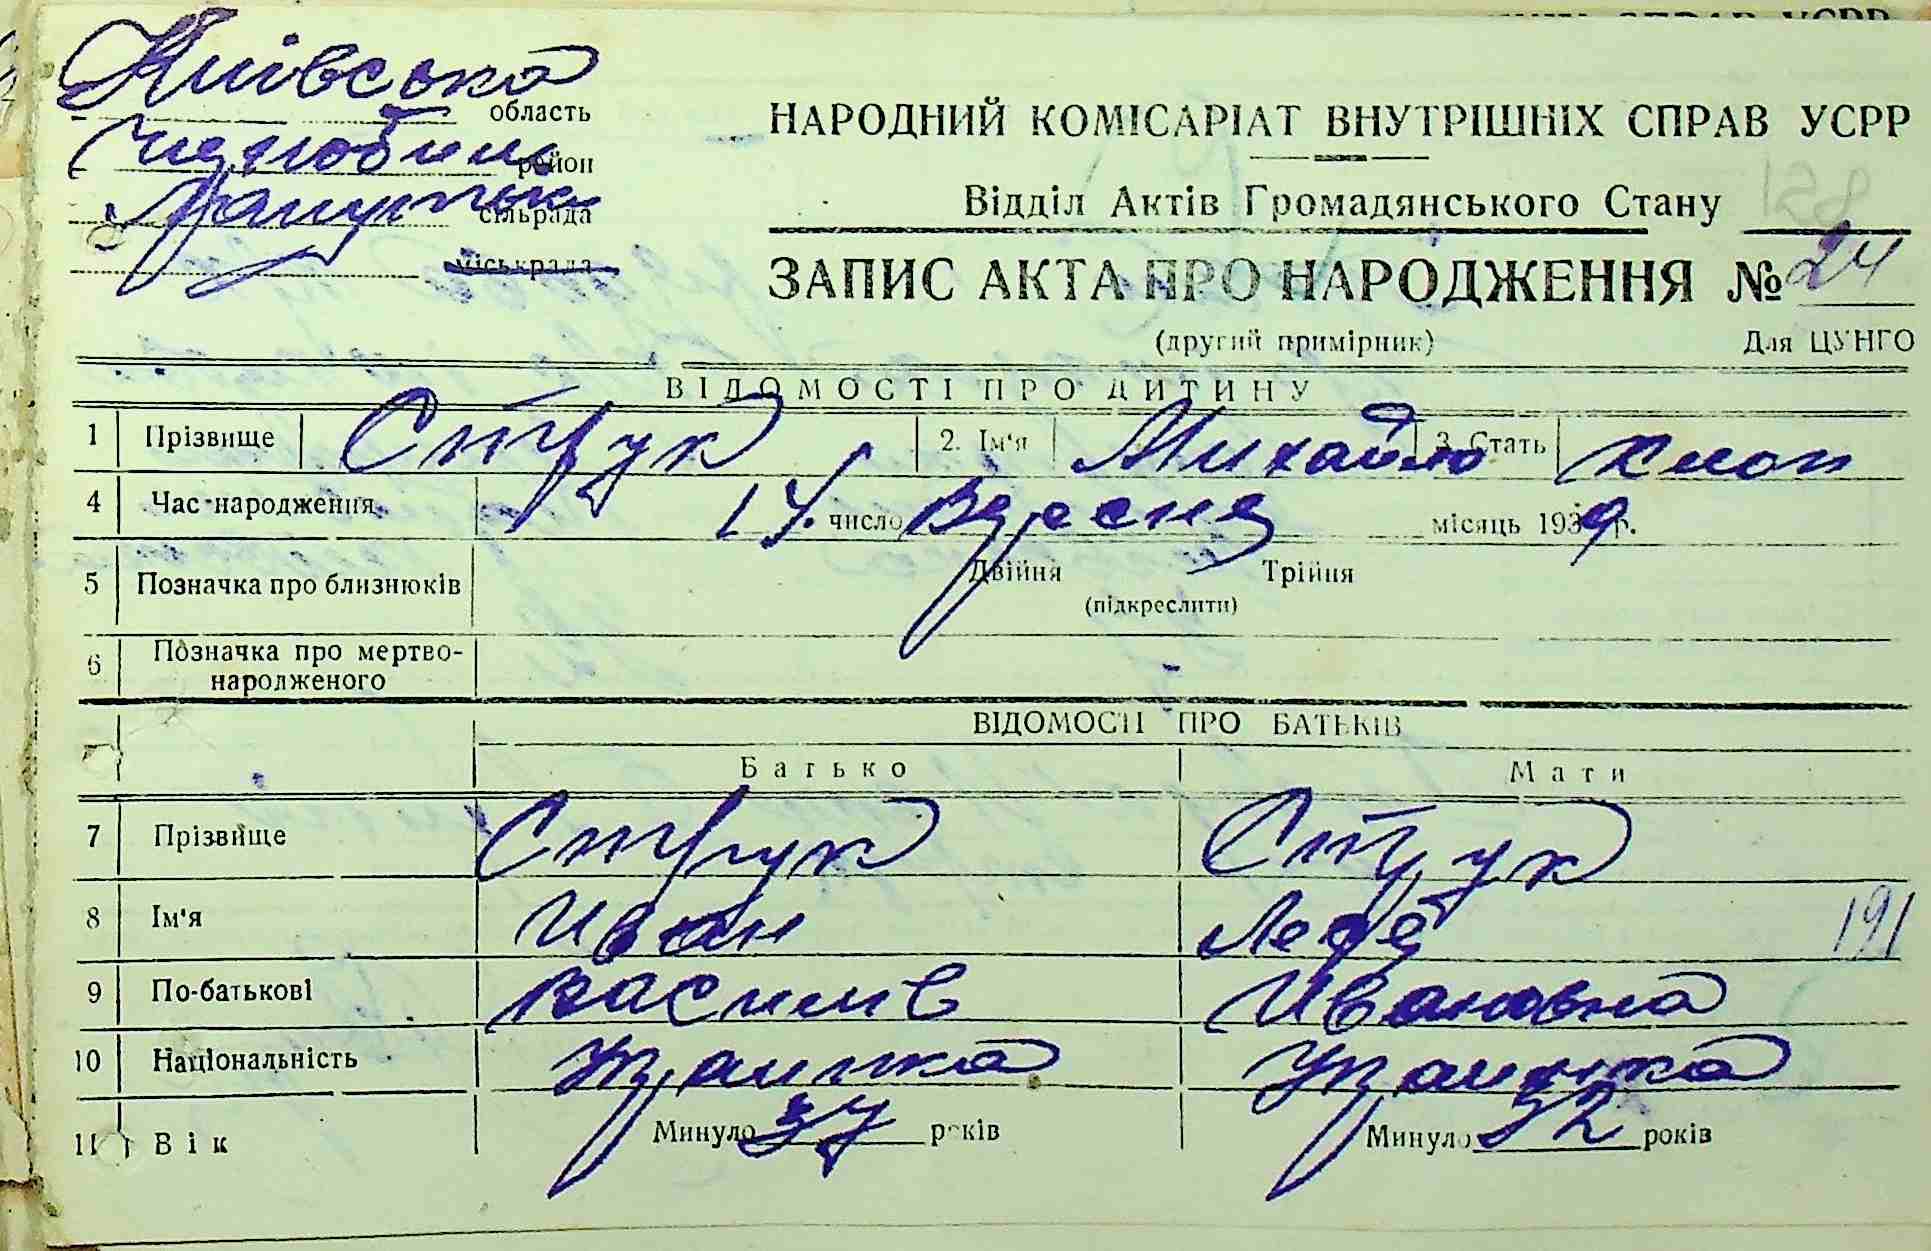 Київська область
Чорнобиль район
сільрада
міськрада
НАРОДНИЙ КОМІСАРІАТ ВНУТРІШНІХ СПРАВ УСРР
Відділ Актів Громадянського Стану
ЗАПИС АКТА ПРО НАРОДЖЕННЯ № 24
(другий примірник) Для ЦУНГО
ВІДОМОСТІ ПРО ДИТИНУ
1 Прізвище Струк 2. Ім'я Михайло 3. Стать хлоп
4 Час народження 14. число Вересня місяць 1939 р.
5 Позначка про близнюків Двійня Трійня
(підкреслити)
6 Позначка про мертво-
народженого
ВІДОМОСТІ ПРО БАТЬКІВ
Батько Мати
7 Прізвище Струк Струк
8 Ім'я Иван 191
9 По-батькові Василів Ивановна
10 Національність
11 Вік Минуло 37 років Минуло 32 років